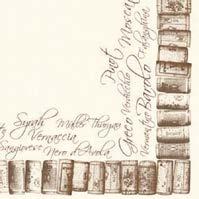 Moscat
Pinot
Falanghina
Verdicchio
Barolo
Greco
Vermentino
Syrah
Müller Thurgau
Vernaccia
Sangiovese
Nero d'Avola